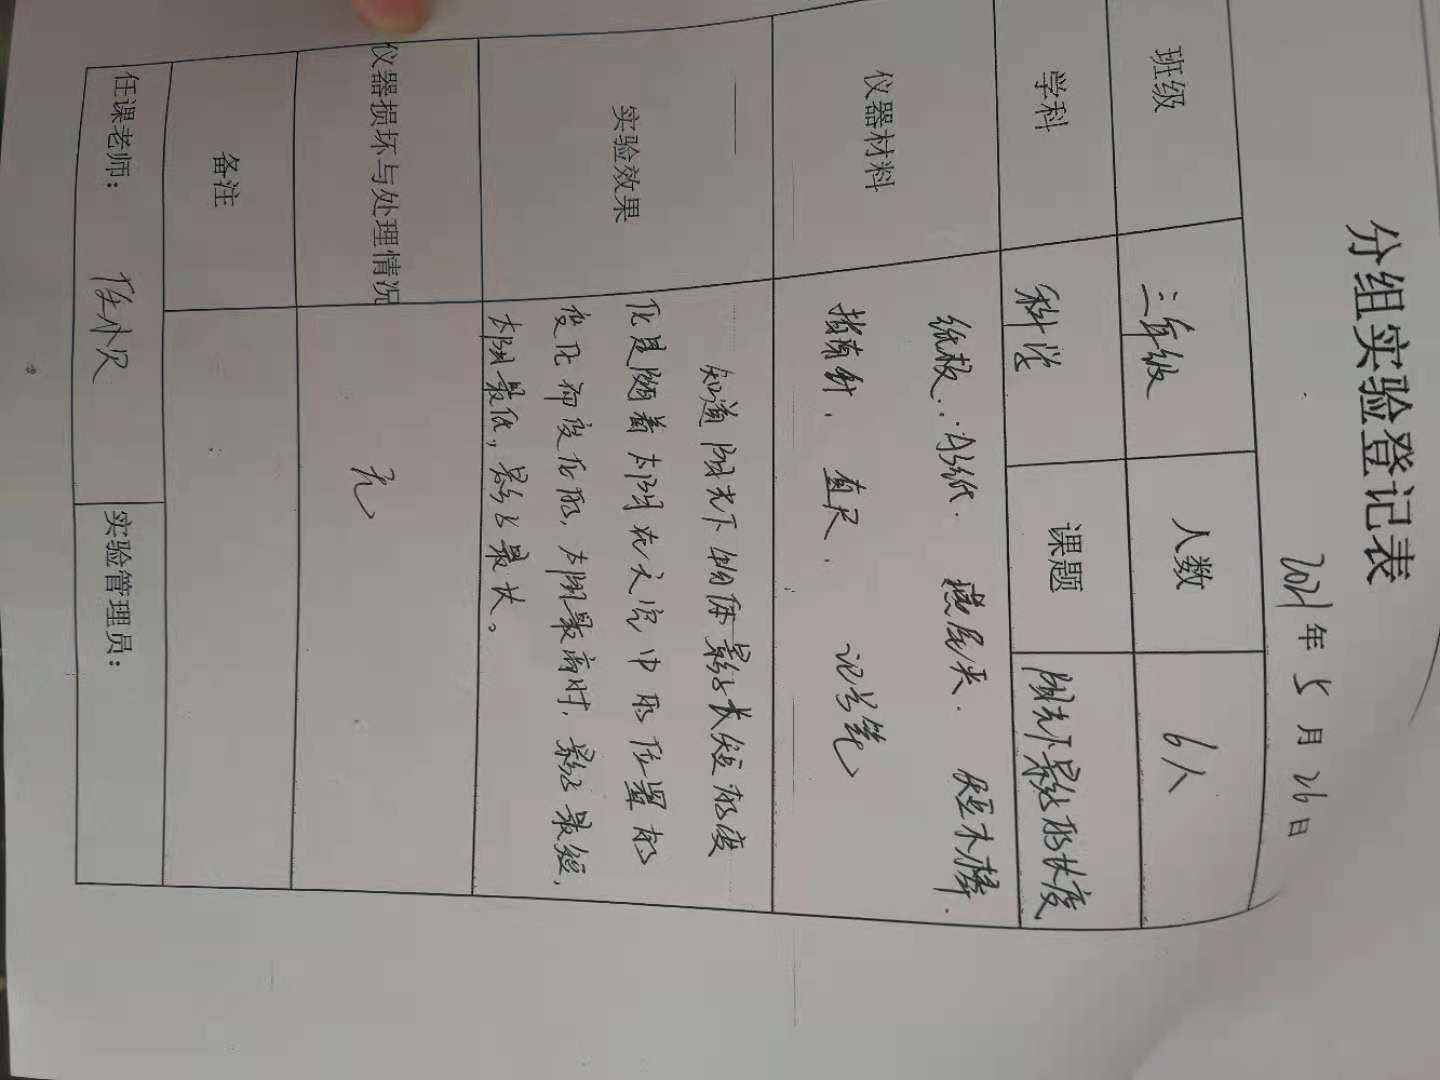 分组实验登记表
2021年5月26日
班级 三年级 人数 6人
学科 科学 课题 阳光下影子的长度
仪器材料 纸板、白纸、燕尾夹、短木棒、
指南针、直尺、记号笔
实验效果 知道阳光下物体影子长短的变
化是随着太阳在天空中的位置的
变化而变化的,太阳最高时,影子最短,
太阳最低,影子最长。
仪器损坏与处理情况 无
备注
任课老师: 实验管理员: